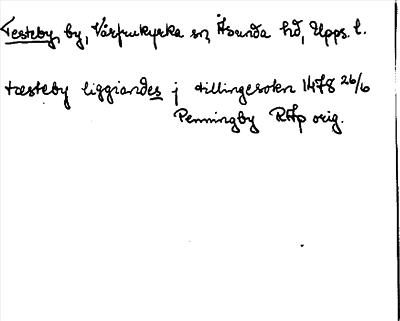 Testeby, by, Vårfrukyrka sn, Åsunda hd, Upps. l.
tæsteby liggiandes j tillingesokn 1478 26/6
Penningby RAp orig.